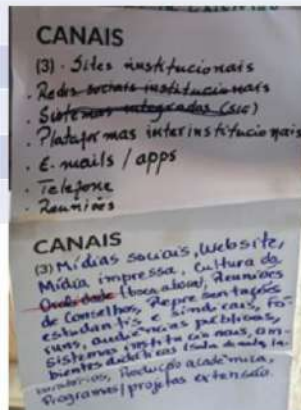 CANAIS
(3) · Sites institucionais
· Redes sociais institucionais
· Sistemas integrados (SIG)
· Plataformas interinstitucionais
· E-mails / apps
· Telefone
· Reuniões
CANAIS
(3) Mídias sociais, Website,
Mídia impressa, Cultura da
Oralidade (boca a boca), Reuniões
de Conselhos, Representações
estudantis e sindicais, Fó-
runs, audiências públicas,
sistemas institucionais, am-
bientes didáticos (sala de aula, la-
boratórios, Produção acadêmica,
Programas/projetos extensão.